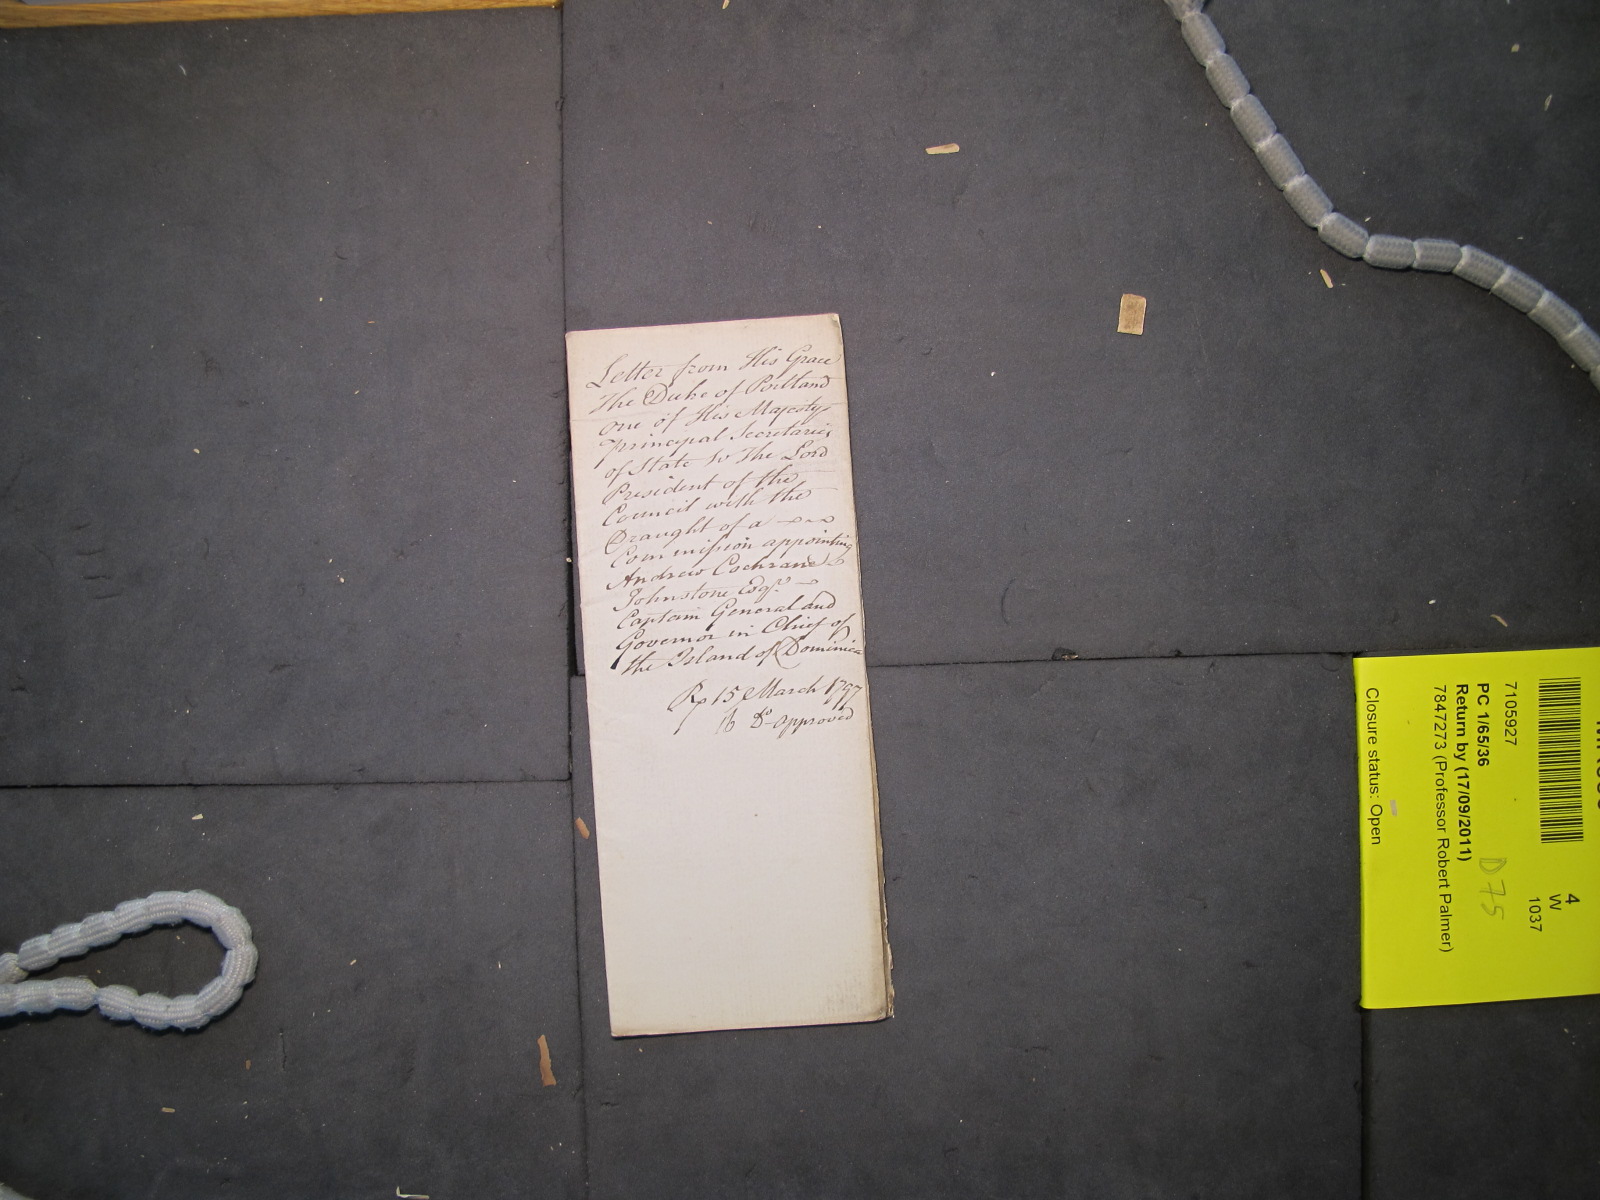 Letter from His Grace
The Duke of Portland
one of His Majestys
Principal Secretaries
of State to The Lord
President of the
Council with the
Draught of a
Commission appointing
Andrew Cochrane
Johnstone Esqr.
Captain General and
Governor in Chief of
the Island of Dominica
Rx 15 March 1797
16 Do. approved
4
W
1037
7105927
D75
PC 1/65/36
Return by (17/09/2011)
7847273 (Professor Robert Palmer)
Closure status: Open